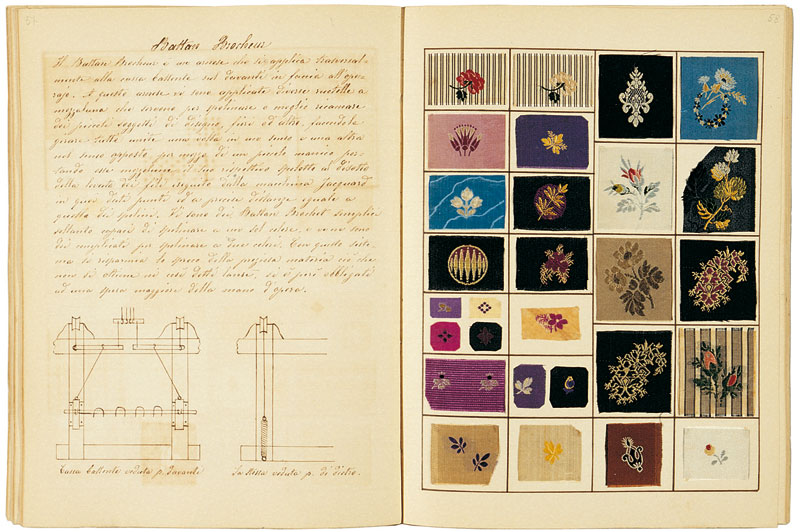 57
Battan Brocheur
Il Battan Brocheur è un arnese che si applica trasversal-
mente alla cassa battente sul davanti in faccia all'ope-
rajo. A questo arnese vi sono applicate diverse navette a
mezzaluna che servono per spolinare o meglio ricamare
dei piccoli soggetti di disegno, fiori ed altro, facendole
girare tutte unite una volta in un senso e una altra
nel senso opposto per mezzo di un piccolo manico,
dette navette il suo rispettivo spoletto al disotto
della levata dei fili eseguita dalla macchina Jacquard
in quei dati punti ed a precisa distanza eguale a
quella dei spolini. Vi sono dei Battan Brochet semplici
soltanto capaci di spolinare a un sol colore, e ve ne sono
dei complicati per spolinare a due colori. Con questo siste-
ma si risparmia lo spreco della materia ciò che
non si ottiene coi lanci, si è però obbligati
ad una spesa maggiore della mano d'opera.
Cassa battente veduta p. davanti
La stessa veduta p. di dietro.
58